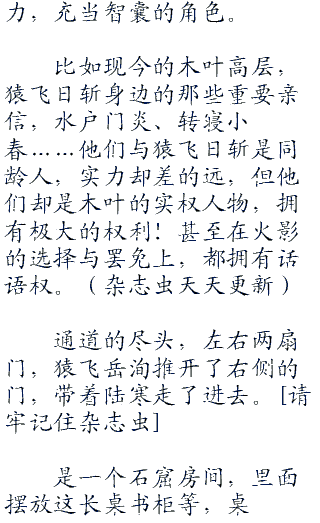 力，充当智囊的角色。
比如现今的木叶高层，
猿飞日斩身边的那些重要亲
信，水户门炎、转寝小
春……他们与猿飞日斩是同
龄人，实力却差的远，但他
们却是木叶的实权人物，拥
有极大的权利！甚至在火影
的选择与罢免上，都拥有话
语权。（杂志虫天天更新）
通道的尽头，左右两扇
门，猿飞岳洵推开了右侧的
门，带着陆寒走了进去。[请
牢记住杂志虫]
是一个石窟房间，里面
摆放这长桌书柜等，桌